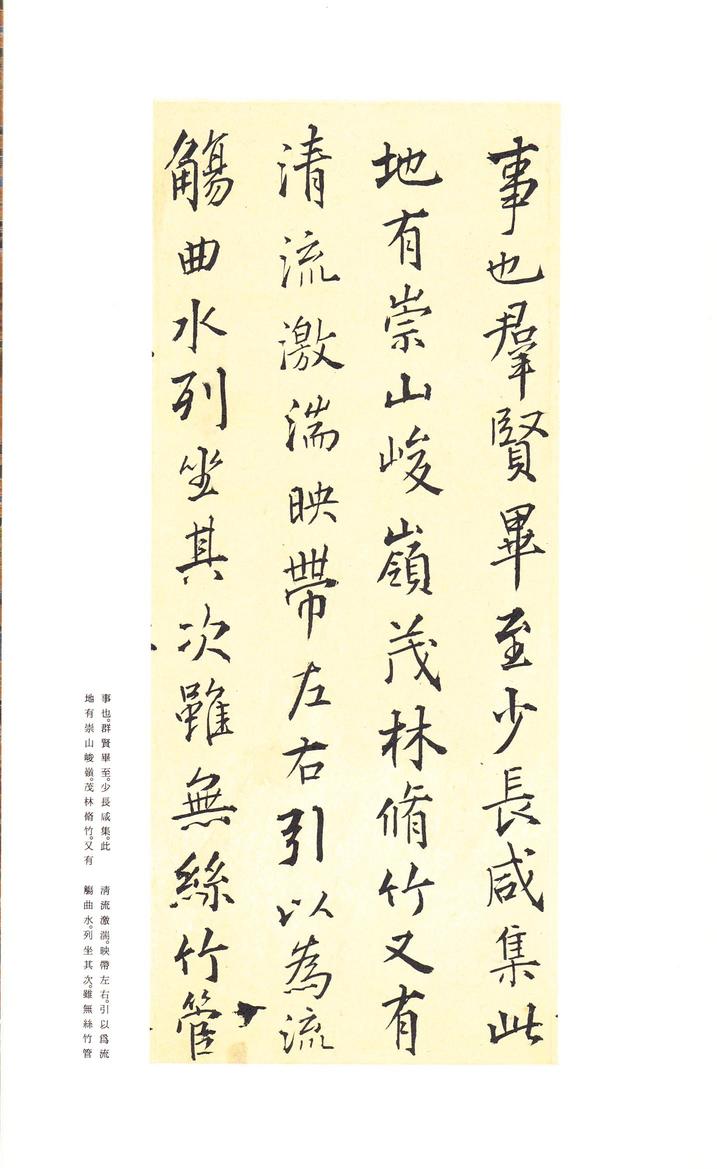 事也羣賢畢至少長咸集此
地有崇山峻嶺茂林脩竹又有
清流激湍映帶左右引以為流
觴曲水列坐其次雖無絲竹管
事也。群賢畢至。少長咸集。此
地有崇山峻嶺。茂林脩竹。又有
清流激湍。映帶左右。引以爲流
觴曲水。列坐其次。雖無絲竹管